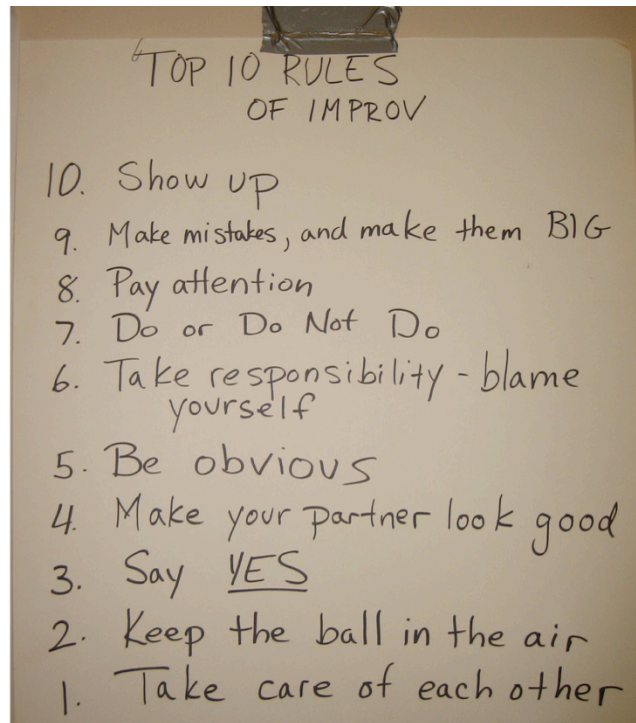 TOP 10 RULES
OF IMPROV
10. Show up
9. Make mistakes, and make them BIG
8. Pay attention
7. Do or Do Not Do
6. Take responsibility - blame
yourself
5. Be obvious
4. Make your partner look good
3. Say YES
2. Keep the ball in the air
1. Take care of each other